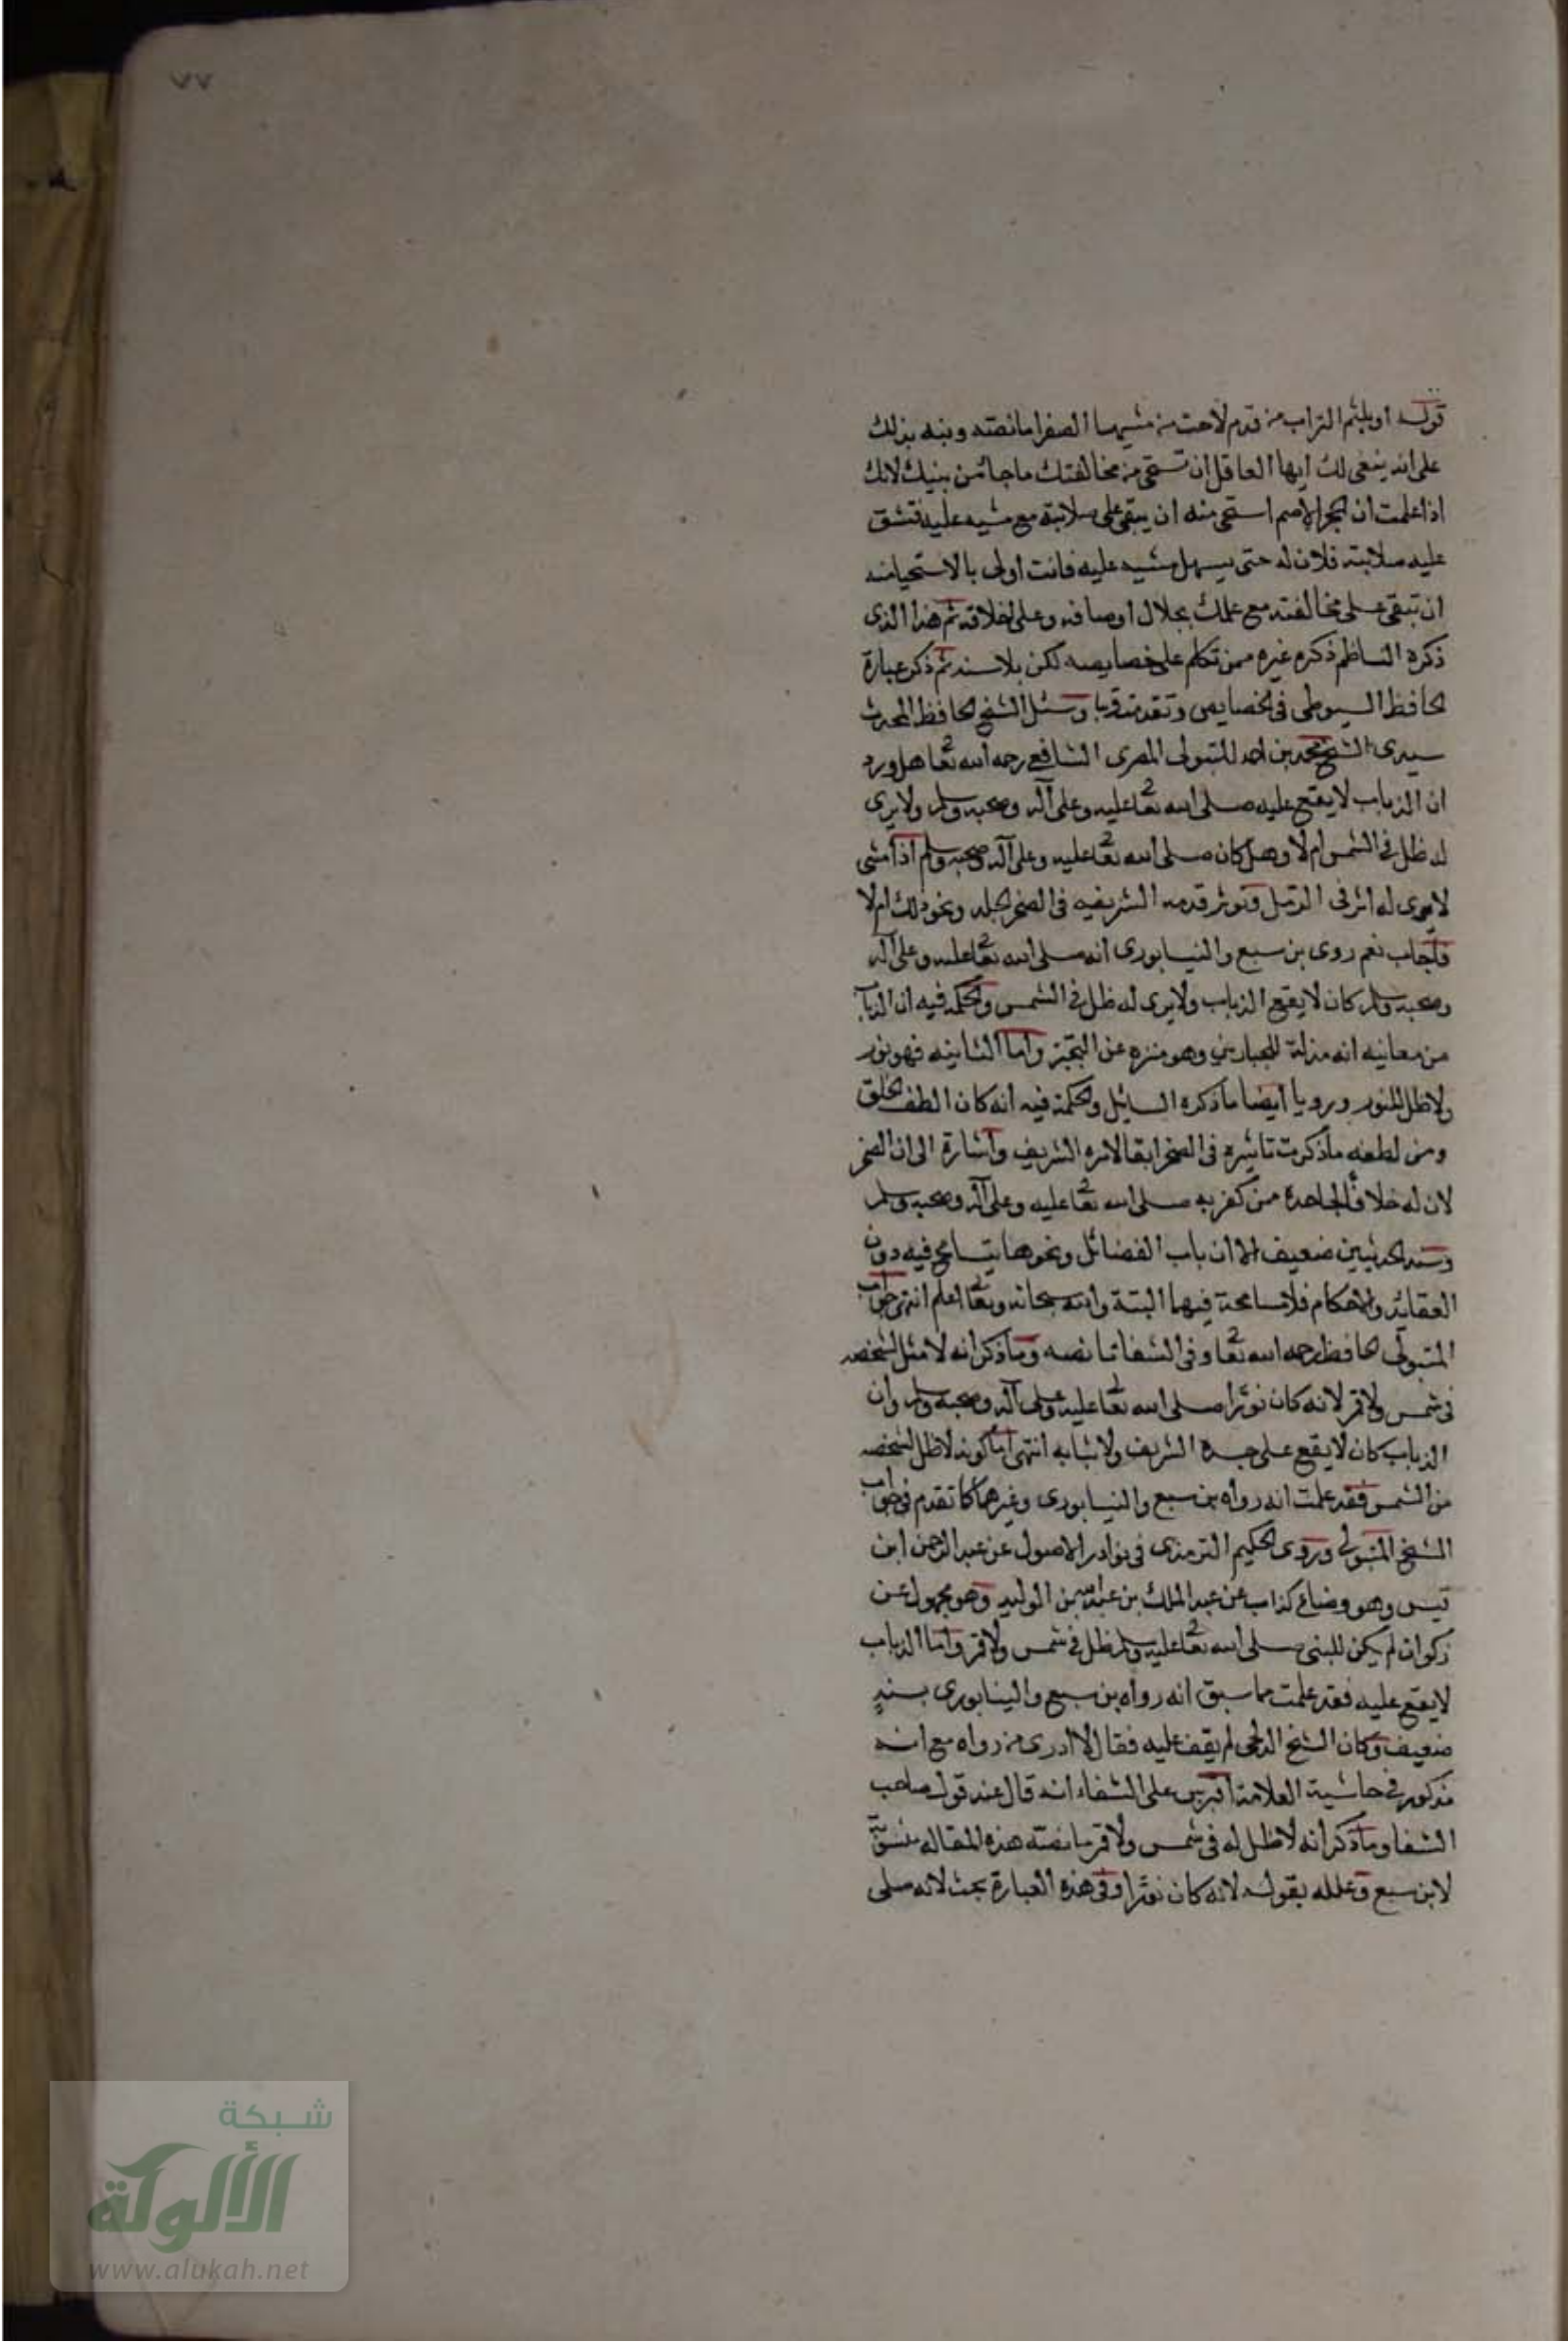 ٧٧
قوله او بلثم التراب من قدم لاحت من مشيها الصفرا ما نصته ونبه بذلك
على انه ينبغى لك ايها العاقل ان تستحى من مخالفتك ما جا من نبيك لانك
اذا علمت ان الحجر الاصم استحى منه ان يبقى على صلابته مع مشيه عليه فتشق
عليه صلابته فلان له حتى يسهل مشيه عليه فانت اولى بالاستحيا منه
ان تبقى على مخالفته مع علمك بجلال اوصافه وعلى اخلاقه ثم هذا الذى
ذكره الناظم ذكره غيره ممن تكلم على خصايصه لكن بلا سند ثم ذكر عبارة
الحافظ السيوطى فى الخصايص وتقدمت قريبا وسئل الشيخ الحافظ المحدث
سيدى الشيخ محمد بن احمد المتبولى المصرى الشافعى رحمه الله تعا هل ورد
ان الذباب لا يقع عليه صلى الله تعا عليه وعلى آله وصحبه وسلم ولا يرى
له ظل فى الشمس ام لا وهل كان صلى الله تعا عليه وعلى آله وصحبه وسلم اذا مشى
لا يرى له اثر فى الرمل وتوثر قدمه الشريفه فى الصخر الجلد ونحو ذلك ام لا
فاجاب نعم روى بن سبع والنيسابورى انه صلى الله تعا عليه وعلى آله
وصحبه وسلم كان لا يقع الذباب ولا يرى له ظل فى الشمس والحكمة فيه ان الذباب
من معانيه انه مذلة للجبارين وهو منزه عن التجبر واما الثانيه فهو نور
ولا ظل للنور ورويا ايضا ما ذكره السايل والحكمة فيه انه كان الطف الخلق
ومن لطفه ما ذكرت تاثيره فى الصخر ابقا لاثره الشريف واشارة الى ان الصخر
لان له خلافا لجاحده ممن كفر به صلى الله تعا عليه وعلى آله وصحبه وسلم
وسند الحديثين ضعيف الا ان باب الفضائل ونحوها يتسامح فيه دون
العقائد والاحكام فلا مسامحة فيهما البتة والله سبحانه وتعا اعلم انتهى جواب
المتبولى الحافظ رحمه الله تعا وفى الشفا ما نصه وما ذكر انه لا مثل لشخصه
فى شمس ولا قمر لانه كان نورا صلى الله تعا عليه وعلى آله وصحبه وسلم وان
الذباب كان لا يقع على جسده الشريف ولا ثيابه انتهى اما كونه لا ظل لشخصه
من الشمس فقد علمت انه رواه بن سبع والنيسابورى وغيرهما كما تقدم فى جواب
الشيخ المتبولى وروى الحكيم الترمذى فى نوادر الاصول عن عبد الرحمن ابن
قيس وهو وضاع كذاب عن عبد الملك بن عبد الله بن الوليد وهو مجهول عن
ذكوان لم يكن للنبى صلى الله تعا عليه وسلم ظل فى شمس ولا قمر واما الذباب
لا يقع عليه فقد علمت مما سبق انه رواه بن سبع والنيسابورى بسند
ضعيف وكان الشيخ الدلجى لم يقف عليه فقال لا ادرى من رواه مع انه
مذكور فى حاشية العلامة اقبرس على الشفاء انه قال عند قول صاحب
الشفا وما ذكر انه لا ظل له فى شمس ولا قمر ما نصته هذه المقاله منسوبة
لابن سبع وعلله بقوله لانه كان نورا وفى هذه العبارة بحث لانه صلى
شبكة
الألوكة
www.alukah.net